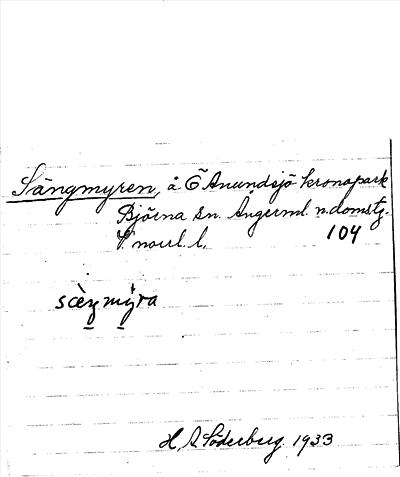 Sängmyren, å Ö Anundsjö kronopark
Björna sn. Ångerml. n. domstg.
V. norrl. l. 104
scèŋmýra
H. A. Söderberg 1933